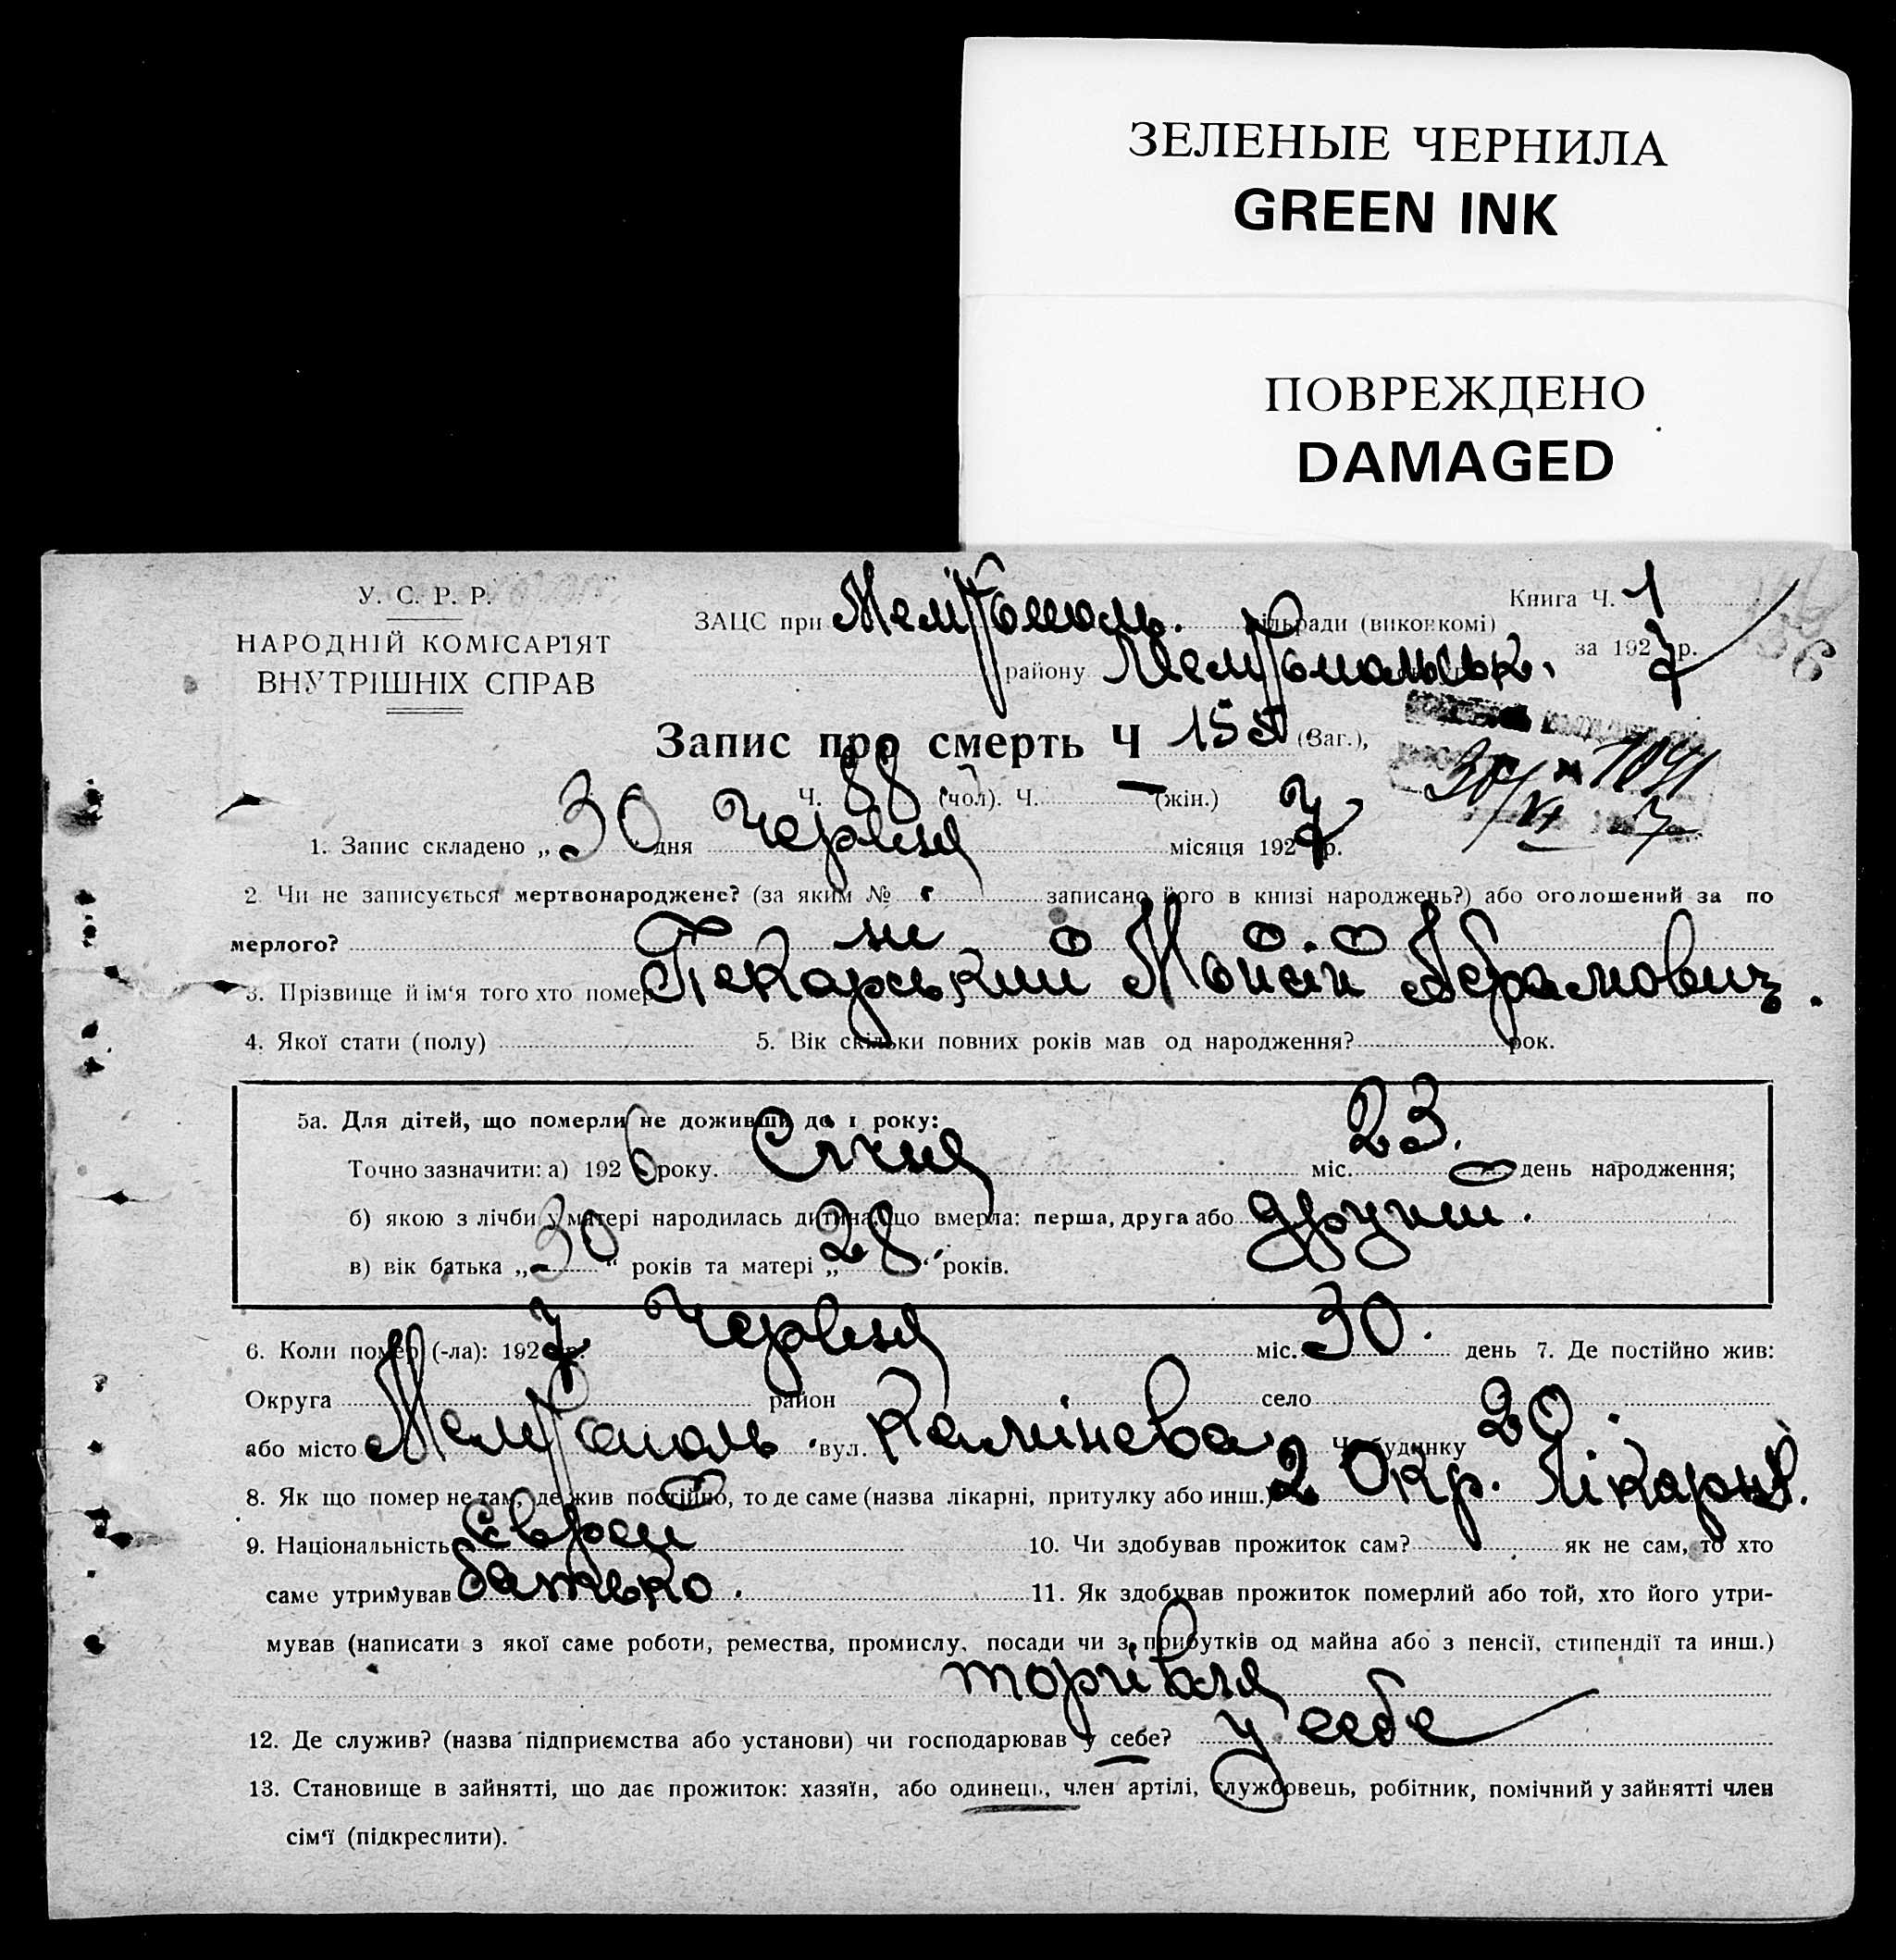 ЗЕЛЕНЫЕ ЧЕРНИЛА
GREEN INK
ПОВРЕЖДЕНО
DAMAGED
У. С. Р. Р.
НАРОДНІЙ КОМІСАР'ІЯТ
ВНУТРІШНІХ СПРАВ
Книга Ч. 1
ЗАЦС при Мелітополь. мільради (виконкомі)
за 1927 р.
району Мелітопольськ.
36
Запис про смерть Ч 155 (Заг.),
Ч. 88 (чол). Ч. — (жін.)
30/VI 7
1. Запис складено „30 дня Червня місяця 1927 р.
2. Чи не записується мертвонароджене? (за яким № записано його в книзі народжень?) або оголошений за по
мерлого? ні
3. Прізвище й ім'я того хто помер Пекарський Мойсій Абрамович.
4. Якої стати (полу) 5. Вік скільки повних років мав од народження? рок.
5а. Для дітей, що померли не доживши до 1 року:
Точно зазначити: а) 1926 року. Січня міс. 23. день народження;
б) якою з лічби у матері народилась дитина, що вмерла: перша, друга або другий.
в) вік батька „30" років та матері „28" років.
6. Коли помер (-ла): 1927 р. Червня міс. 30. день 7. Де постійно жив:
Округа район село
або місто Мелітополь вул. Камінева Ч. будинку 20.
8. Як що помер не там, де жив постійно, то де саме (назва лікарні, притулку або инш.) 2 Окр. Лікарня.
9. Національність Єврей 10. Чи здобував прожиток сам? як не сам, то хто
саме утримував батько. 11. Як здобував прожиток померлий або той, хто його утри-
мував (написати з якої саме роботи, ремества, промислу, посади чи з прибутків од майна або з пенсії, стипендії та инш.)
торгівля
12. Де служив? (назва підприємства або установи) чи господарював у себе? у себе
13. Становище в зайнятті, що дає прожиток: хазяїн, або одинець, член артілі, службовець, робітник, помічний у зайнятті член
сім'ї (підкреслити).